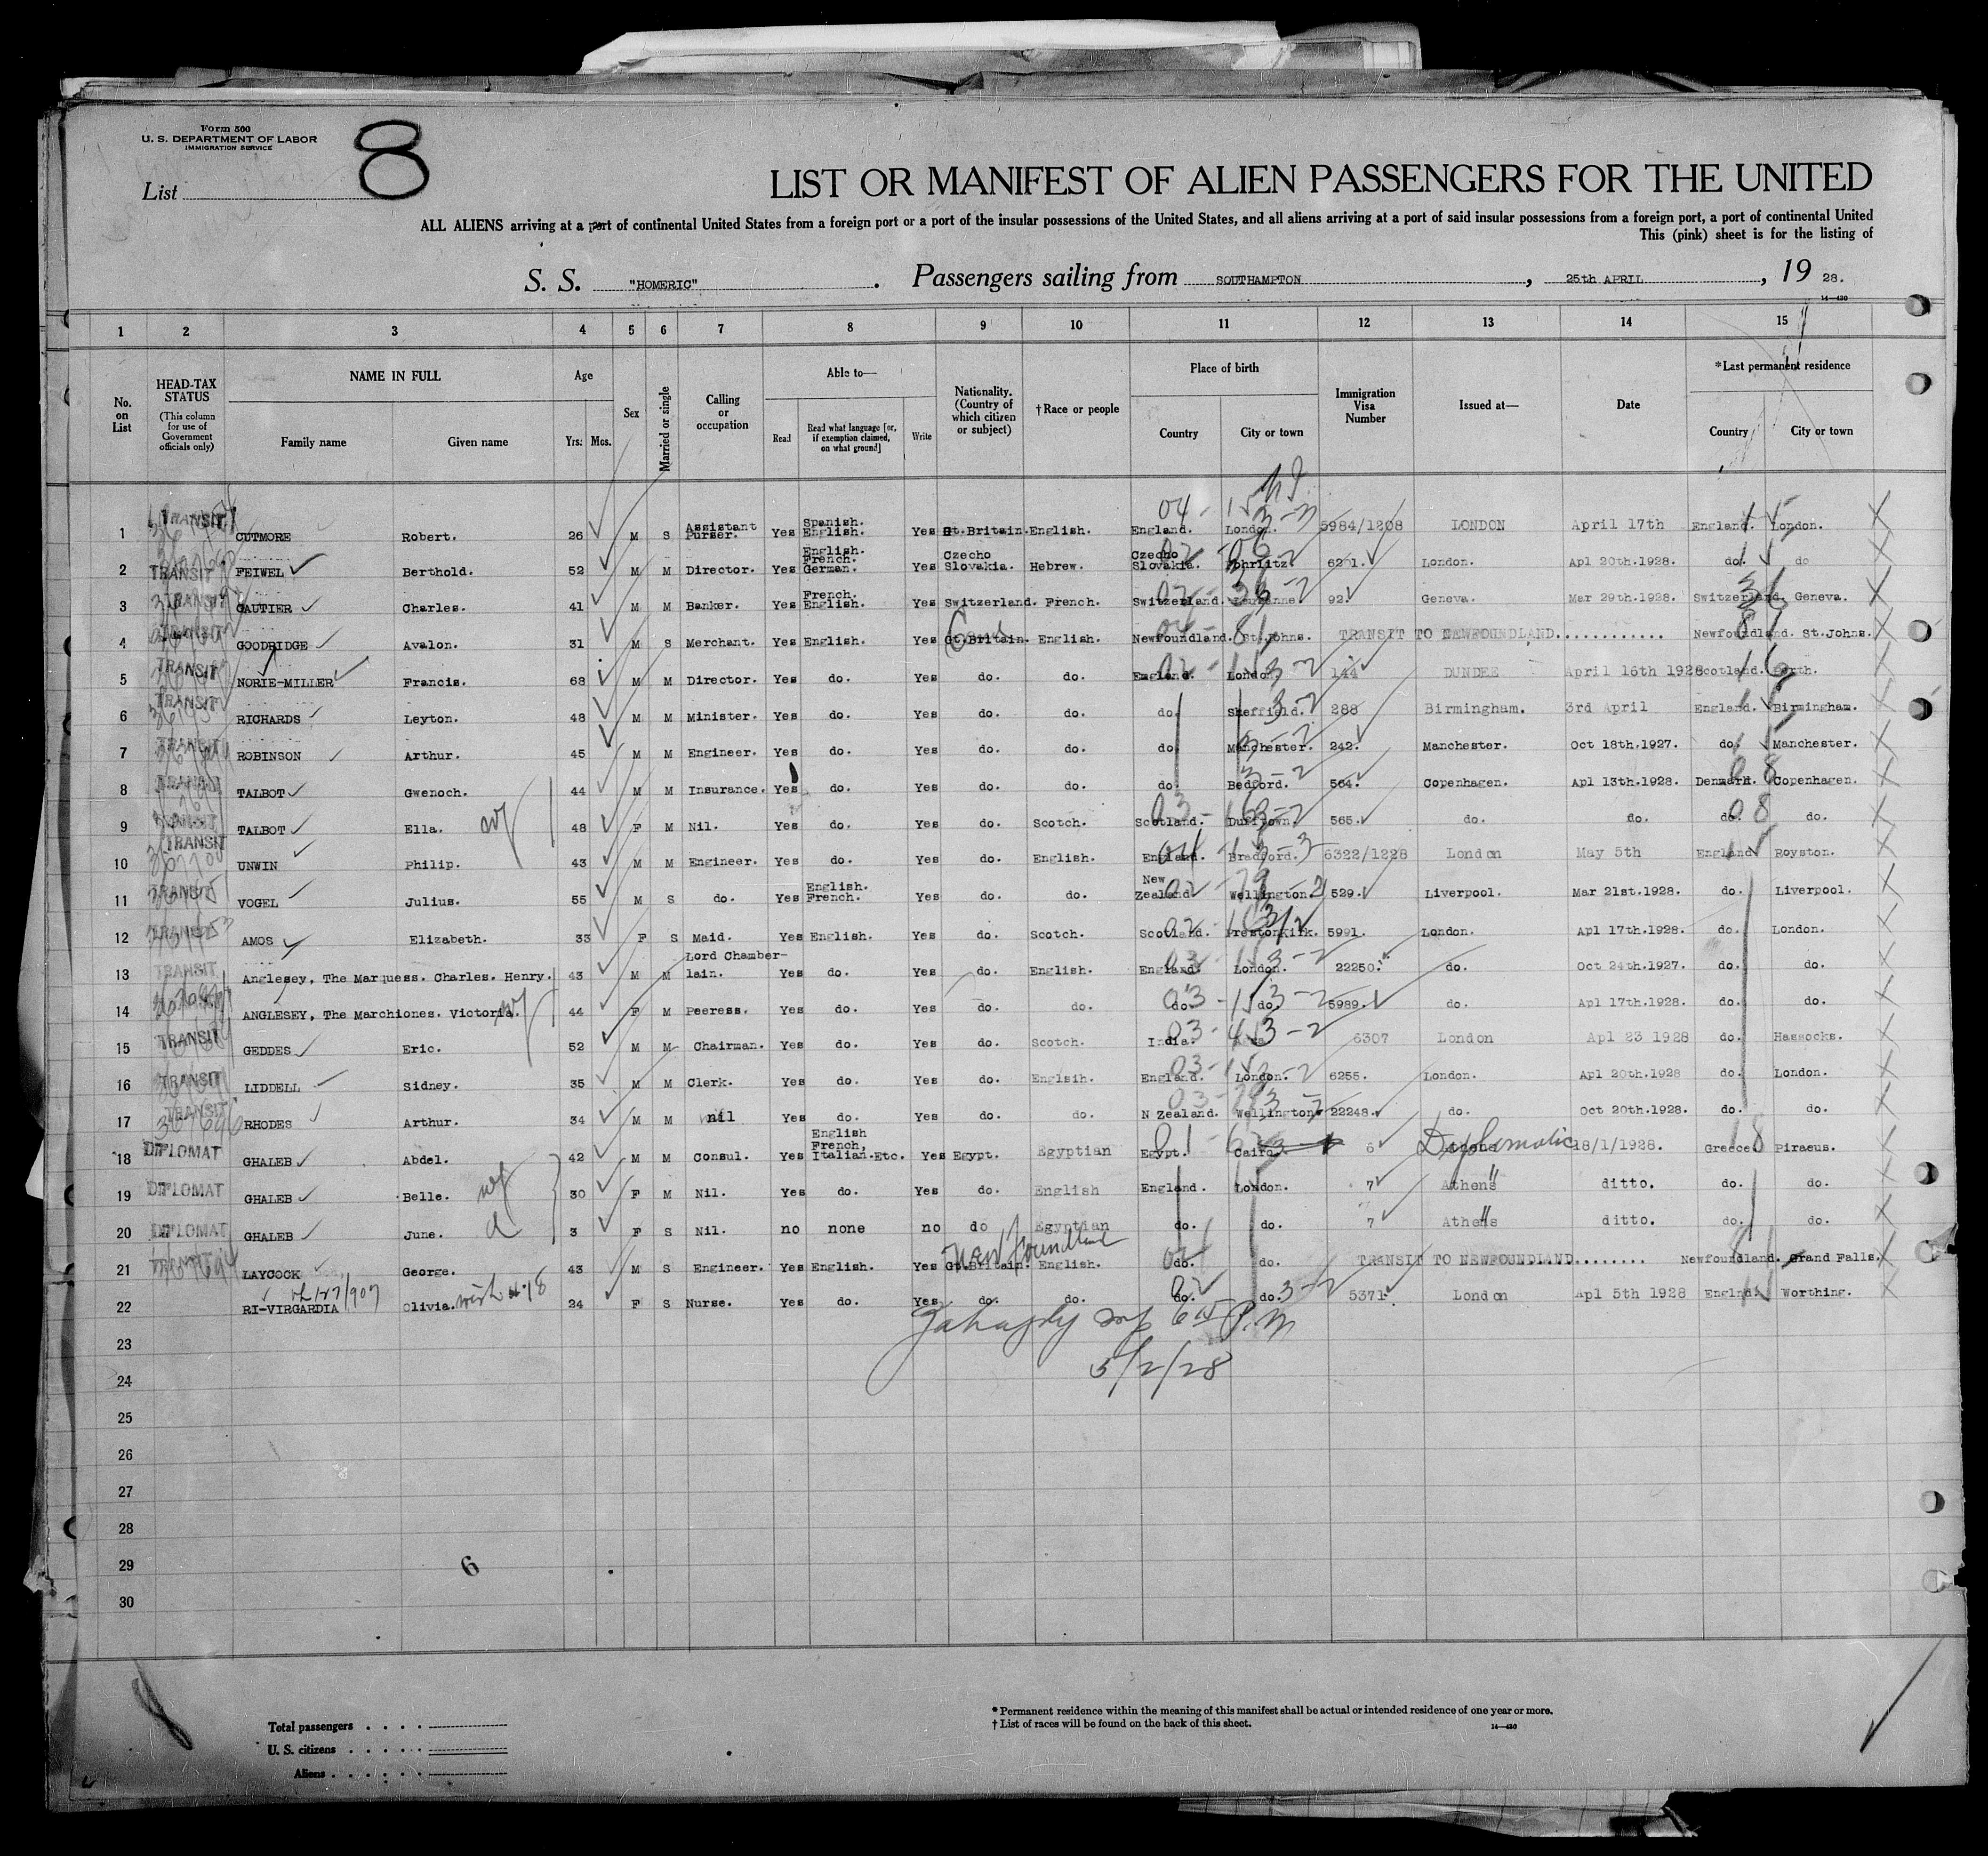 Form 500
U. S. DEPARTMENT OF LABOR
IMMIGRATION SERVICE
8
List
LIST OR MANIFEST OF ALIEN PASSENGERS FOR THE UNITED
ALL ALIENS arriving at a port of continental United States from a foreign port or a port of the insular possessions of the United States, and all aliens arriving at a port of said insular possessions from a foreign port, a port of continental United
This (pink) sheet is for the listing of
S. S. "HOMERIC" . Passengers sailing from SOUTHAMPTON , 25th APRIL , 19 28.
14—430
1 2 3 4 5 6 7 8 9 10 11 12 13 14 15
No. on List
HEAD-TAX STATUS (This column for use of Government officials only)
NAME IN FULL
Family name Given name
Age
Yrs. Mos.
Sex
Married or single
Calling or occupation
Able to—
Read Read what language [or, if exemption claimed, on what ground] Write
Nationality. (Country of which citizen or subject)
† Race or people
Place of birth
Country City or town
Immigration Visa Number
Issued at—
Date
* Last permanent residence
Country City or town
1 TRANSIT CUTMORE Robert. 26 M S Assistant Purser. Yes Spanish. English. Yes Gt.Britain. English. England. London. 5984/1208 LONDON April 17th England. London.
2 TRANSIT FEIWEL Berthold. 52 M M Director. Yes English. French. German. Yes Czecho Slovakia. Hebrew. Czecho Slovakia. London. Apl 20th.1928. do. do
3 TRANSIT GAUTIER Charles. 41 M M Banker. Yes French. English. Yes Switzerland. French. Switzerland. Lausanne. 92. Geneva. Mar 29th.1928. Switzerland. Geneva.
4 TRANSIT GOODRIDGE Avalon. 31 M S Merchant. Yes English. Yes Gt.Britain. English. Newfoundland. St.Johns. TRANSIT TO NEWFOUNDLAND............ Newfoundland. St.Johns.
5 TRANSIT NORIE-MILLER Francis. 68 M M Director. Yes do. Yes do. do. England. London. 144 DUNDEE April 16th 1928 Scotland. Perth.
6 TRANSIT RICHARDS Leyton. 48 M M Minister. Yes do. Yes do. do. do. Sheffield. 288 Birmingham. 3rd April England. Birmingham.
7 TRANSIT ROBINSON Arthur. 45 M M Engineer. Yes do. Yes do. do. do. Manchester. 242. Manchester. Oct 18th.1927. do. Manchester.
8 TRANSIT TALBOT Gwenoch. 44 M M Insurance. Yes do. Yes do. do. do. Bedford. 564. Copenhagen. Apl 13th.1928. Denmark. Copenhagen.
9 TRANSIT TALBOT Ella. 48 F M Nil. Yes do. Yes do. Scotch. Scotland. Dufftown. 565. do. do. do. do.
10 TRANSIT UNWIN Philip. 43 M M Engineer. Yes do. Yes do. English. England. Bradford. 6322/1228 London May 5th England Royston.
11 TRANSIT VOGEL Julius. 55 M S do. Yes English. French. Yes do. do. New Zealand Wellington. 529. Liverpool. Mar 21st.1928. do. Liverpool.
12 TRANSIT AMOS Elizabeth. 33 F S Maid. Yes English. Yes do. Scotch. Scotland. Prestonkirk. 5991. London. Apl 17th.1928. do. London.
13 TRANSIT Anglesey, The Marquess. Charles. Henry. 43 M M Lord Chamber-lain. Yes do. Yes do. English. England. London. 22250. do. Oct 24th.1927. do. do.
14 ANGLESEY, The Marchiones. Victoria. 44 F M Peeress. Yes do. Yes do. do. do. do. 5989. do. Apl 17th.1928. do. do.
15 TRANSIT GEDDES Eric. 52 M M Chairman. Yes do. Yes do. Scotch. India. 6307 London Apl 23 1928 do. Hassocks.
16 TRANSIT LIDDELL Sidney. 35 M M Clerk. Yes do. Yes do. Englsih. England. London. 6255. London. Apl 20th.1928 do. London.
17 TRANSIT RHODES Arthur. 34 M M nil Yes do. Yes do. do. N Zealand. Wellington. 22248. do. Oct 20th.1928. do. do.
18 DIPLOMAT GHALEB Abdel. 42 M M Consul. Yes English French, Italian.Etc. Yes Egypt. Egyptian Egypt. Cairo. 6 Diplomatic 18/1/1928. Greece Piraeus.
19 DIPLOMAT GHALEB Belle. 30 F M Nil. Yes do. Yes do. English England. London. 7 Athens ditto. do. do.
20 DIPLOMAT GHALEB June. 3 F S Nil. no none no do Egyptian do. do. 7 Athens ditto. do. do.
21 TRANSIT LAYCOOK George. 43 M S Engineer. Yes English. Yes Gt.Britain. Newfoundland English. do. do. TRANSIT TO NEWFOUNDLAND........ Newfoundland. Grand Falls.
22 RI-VIRGARDIA Olivia. 24 F S Nurse. Yes do. Yes do. do. do. do. 5371 London Apl 5th 1928 England. Worthing.
5/2/28
23
24
25
26
27
28
29
30
6
Total passengers
U. S. citizens
Aliens
* Permanent residence within the meaning of this manifest shall be actual or intended residence of one year or more.
† List of races will be found on the back of this sheet.
14—430